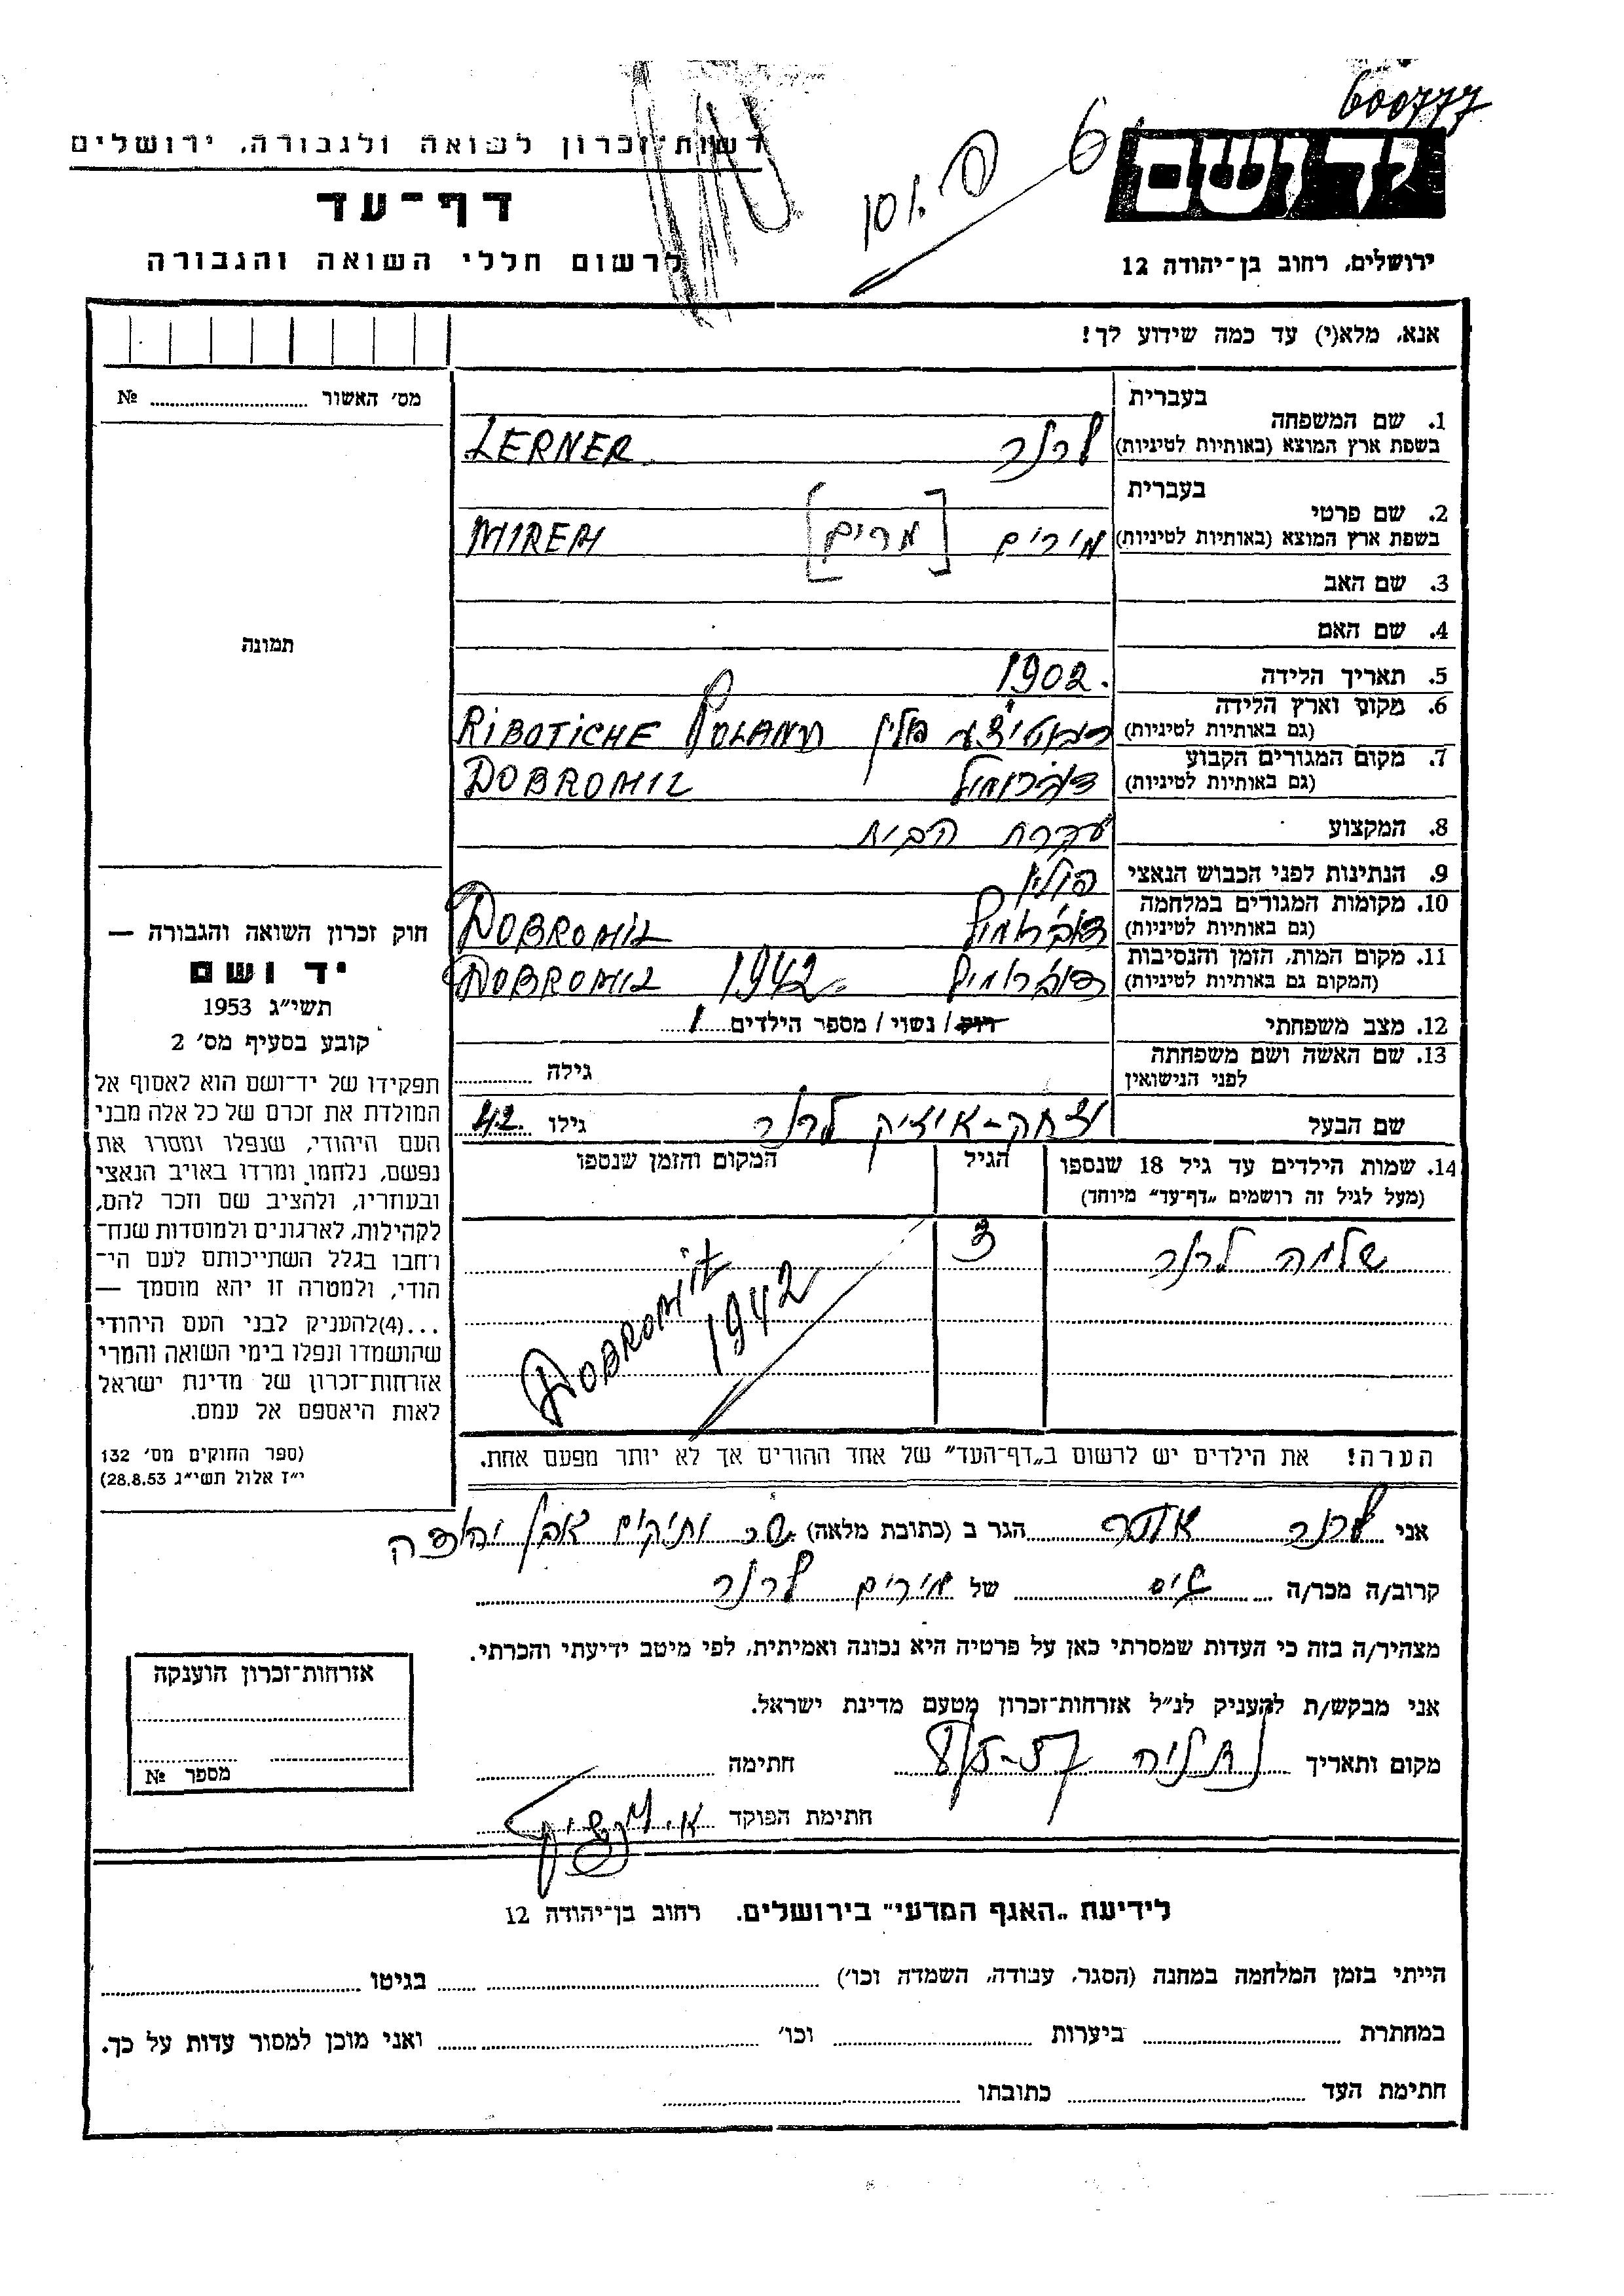 600777
6
יד ושם
רשות־זכרון לשואה ולגבורה, ירושלים
דף־עד
לרשום חללי השואה והגבורה
ירושלים, רחוב בן־יהודה 12
אנא, מלא(י) עד כמה שידוע לך!
מס׳ האשור ........ №
בעברית
1. שם המשפחה
בשפת ארץ המוצא (באותיות לטיניות)
לרנר LERNER
בעברית
2. שם פרטי
בשפת ארץ המוצא (באותיות לטיניות)
מירים [מרים] MIREM
3. שם האב
4. שם האם
תמונה
5. תאריך הלידה 1902.
6. מקום וארץ הלידה
(גם באותיות לטיניות)
פולין RIBOTICHE POLAND
7. מקום המגורים הקבוע
(גם באותיות לטיניות)
דוברומיל DOBROMIL
8. המקצוע עקרת הבית
9. הנתינות לפני הכבוש הנאצי פולין
10. מקומות המגורים במלחמה
(גם באותיות לטיניות)
דוברומיל DOBROMIL
11. מקום המות, הזמן והנסיבות
(המקום גם באותיות לטיניות)
דוברומיל 1942 DOBROMIL
12. מצב משפחתי רווק / נשוי / מספר הילדים 1
13. שם האשה ושם משפחתה
לפני הנישואין
גילה ........
שם הבעל יצחק-איציק לרנר גילו 42
14. שמות הילדים עד גיל 18 שנספו
(מעל לגיל זה רושמים „דף־עד״ מיוחד)
הגיל
המקום והזמן שנספו
שלמה לרנר 3 DOBROMIL
1942
הערה! את הילדים יש לרשום ב„דף־העד״ של אחד ההורים אך לא יותר מפעם אחת.
חוק זכרון השואה והגבורה —
יד ושם
תשי״ג 1953
קובע בסעיף מס׳ 2
תפקידו של יד־ושם הוא לאסוף אל
המולדת את זכרם של כל אלה מבני
העם היהודי, שנפלו ומסרו את
נפשם, נלחמו ומרדו באויב הנאצי
ובעוזריו, ולהציב שם וזכר להם,
לקהילות, לארגונים ולמוסדות שנח־
רחבו בגלל השתייכותם לעם הי־
הודי, ולמטרה זו יהא מוסמך —
...(4)להעניק לבני העם היהודי
שהושמדו ונפלו בימי השואה והמרי
אזרחות־זכרון של מדינת ישראל
לאות היאספם אל עמם.
(ספר החוקים מס׳ 132
י״ז אלול תשי״ג 28.8.53)
אני לרנר הגר ב (כתובת מלאה) ותיקים אבן יהודה
קרוב/ה מכר/ה גיס של מירים לרנר
מצהיר/ה בזה כי העדות שמסרתי כאן על פרטיה היא נכונה ואמיתית, לפי מיטב ידיעתי והכרתי.
אני מבקש/ת להעניק לנ״ל אזרחות־זכרון מטעם מדינת ישראל.
מקום ותאריך נתניה 8/5-57 חתימה
חתימת הפוקד
אזרחות־זכרון הוענקה
מספר №
לידיעת „האגף המדעי״ בירושלים. רחוב בן־יהודה 12
הייתי בזמן המלחמה במחנה (הסגר, עבודה, השמדה וכו׳) ........ בגיטו ........
במחתרת ........ ביערות ........ וכו׳ ........ ואני מוכן למסור עדות על כך.
חתימת העד ........ כתובתו ........